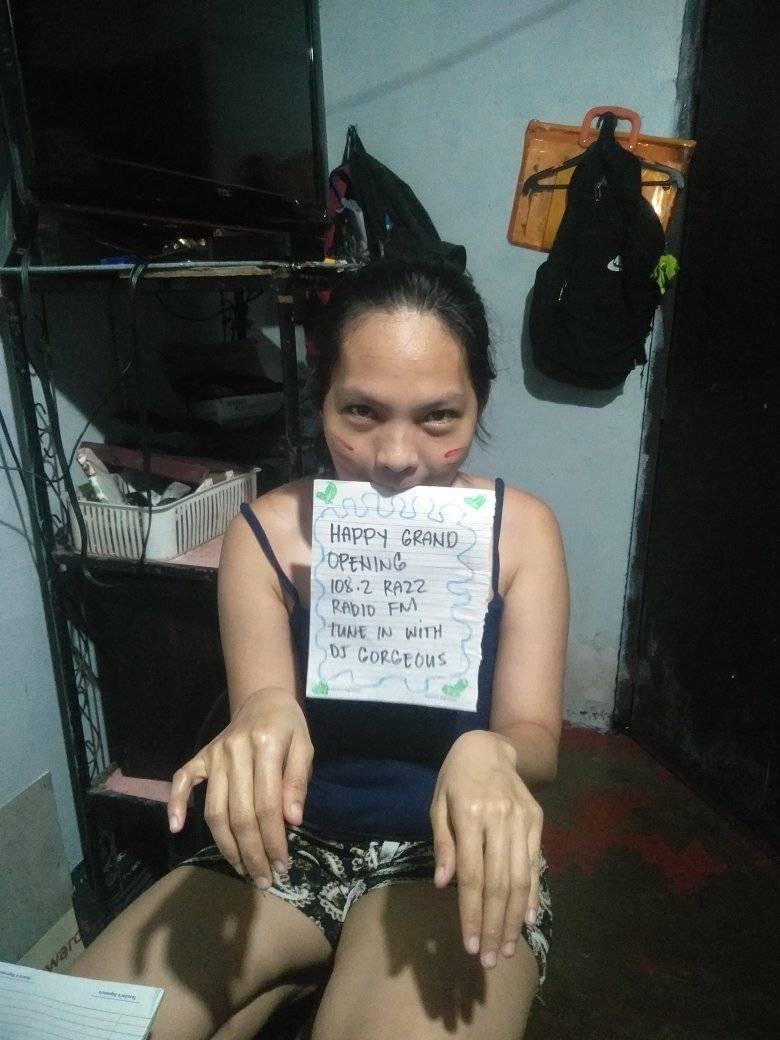 HAPPY GRAND
OPENING
108.2 RAZZ
RADIO FM
TUNE IN WITH
DJ GORGEOUS